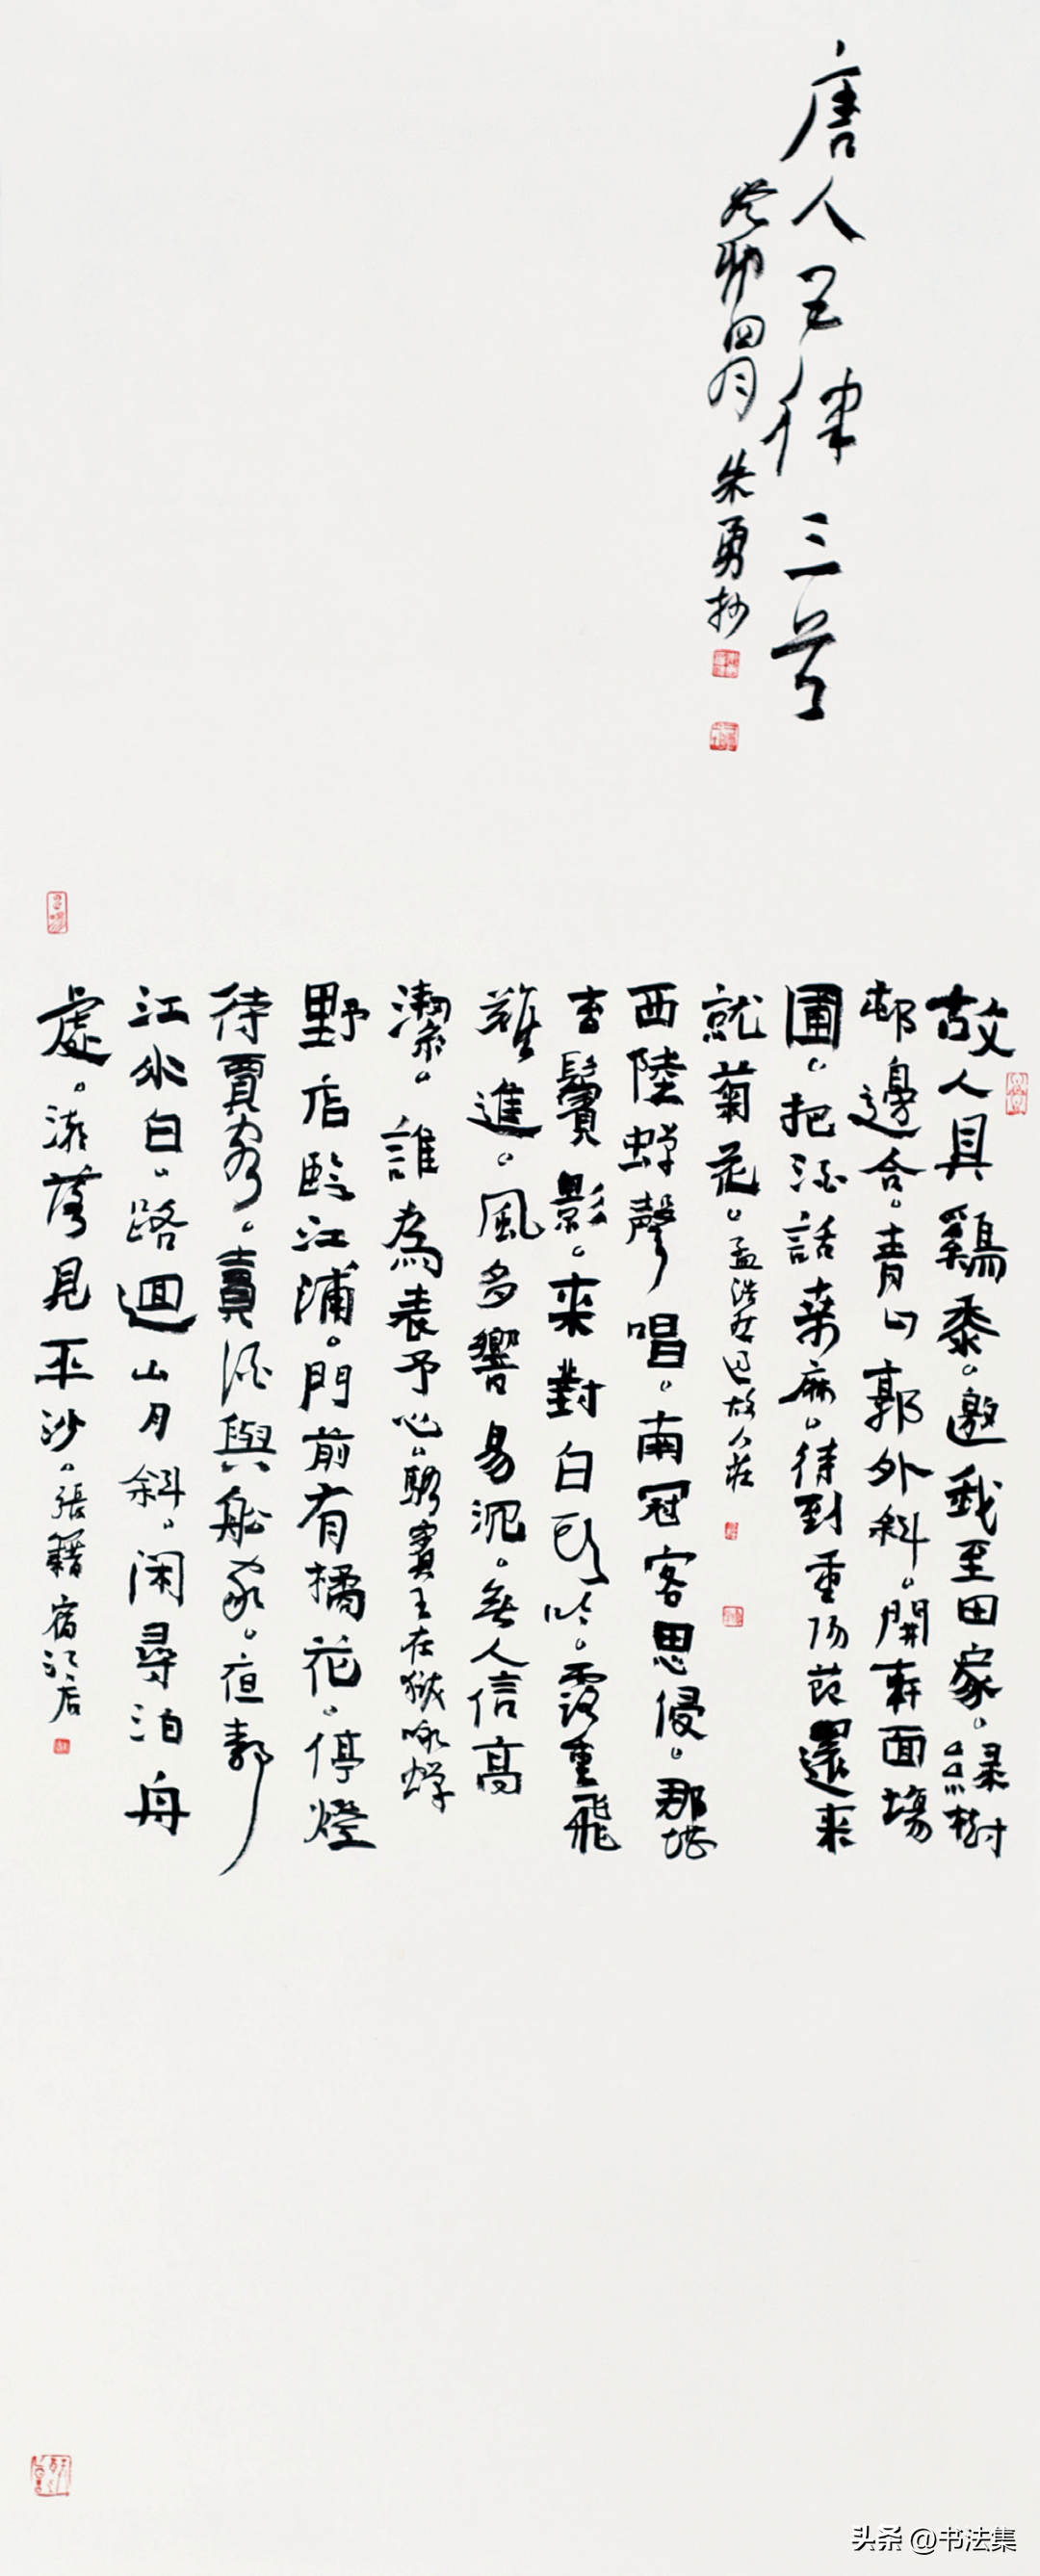 唐人五律三首
癸卯四月 朱勇抄
故人具鷄黍。邀我至田家。緑樹
邨邊合。青山郭外斜。開軒面場
圃。把酒話桑麻。待到重陽節還来
就菊花。孟浩然過故人莊
西陸蟬聲唱。南冠客思侵。那堪
玄鬢影。来對白頭吟。露重飛
難進。風多響易沉。無人信高
潔。誰為表予心。駱賓王在獄咏蟬
野店臨江浦。門前有橘花。停燈
待賈客。賣酒與船家。夜静
江水白。路迴山月斜。闲尋泊舟
處。潮落見平沙。張籍宿江店
头条 @书法集